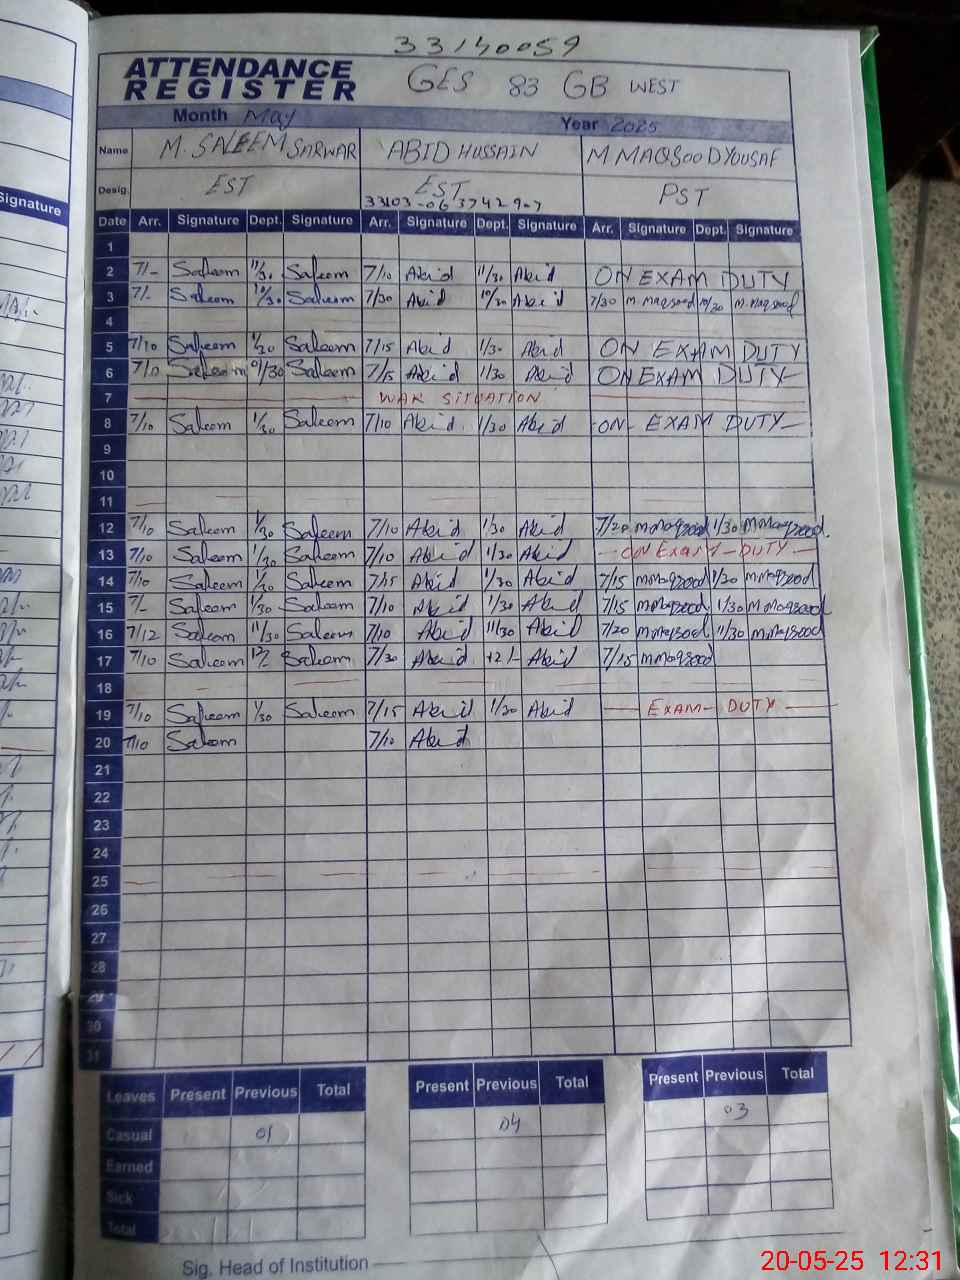 33140059
ATTENDANCE REGISTER GES 83 GB WEST
Month May Year 2025
Name M. SALEEM SARWAR ABID HUSSAIN M MAQSOOD YOUSAF
Desig. EST EST PST
33103-0637429-7
Signature
Date Arr. Signature Dept. Signature Arr. Signature Dept. Signature Arr. Signature Dept. Signature
1
2 7/- Saleem 11/30 Saleem 7/10 Abid 11/30 Abid ON EXAM DUTY
3 7/- Saleem 10/30 Saleem 7/30 Abid 10/30 Abid 7/30 M. Maqsood 10/30 M. Maqsood
4
5 7/10 Saleem 1/30 Saleem 7/15 Abid 1/30 Abid ON EXAM DUTY
6 7/10 Saleem 01/30 Saleem 7/15 Abid 1/30 Abid ON EXAM DUTY
7 WAR SITUATION
8 7/10 Saleem 1/30 Saleem 7/10 Abid 1/30 Abid ON EXAM DUTY
9
10
11
12 7/10 Saleem 1/30 Saleem 7/10 Abid 1/30 Abid 7/20 M Maqsood 1/30 M Maqsood
13 7/10 Saleem 1/30 Saleem 7/10 Abid 1/30 Abid ON EXAM - DUTY
14 7/10 Saleem 1/30 Saleem 7/15 Abid 1/30 Abid 7/15 M Maqsood 1/30 M Maqsood
15 7/- Saleem 1/30 Saleem 7/10 Abid 1/30 Abid 7/15 M Maqsood 1/30 M Maqsood
16 7/12 Saleem 11/30 Saleem 7/10 Abid 11/30 Abid 7/20 M Maqsood 11/30 M Maqsood
17 7/10 Saleem 12/- Saleem 7/30 Abid 12/- Abid 7/15 M Maqsood
18
19 7/10 Saleem 1/30 Saleem 7/15 Abid 1/30 Abid EXAM - DUTY
20 7/10 Saleem 7/10 Abid
21
22
23
24
25
26
27
28
29
30
31
Leaves Present Previous Total Present Previous Total Present Previous Total
Casual 01 04 03
Earned
Sick
Total
Sig. Head of Institution
20-05-25 12:31